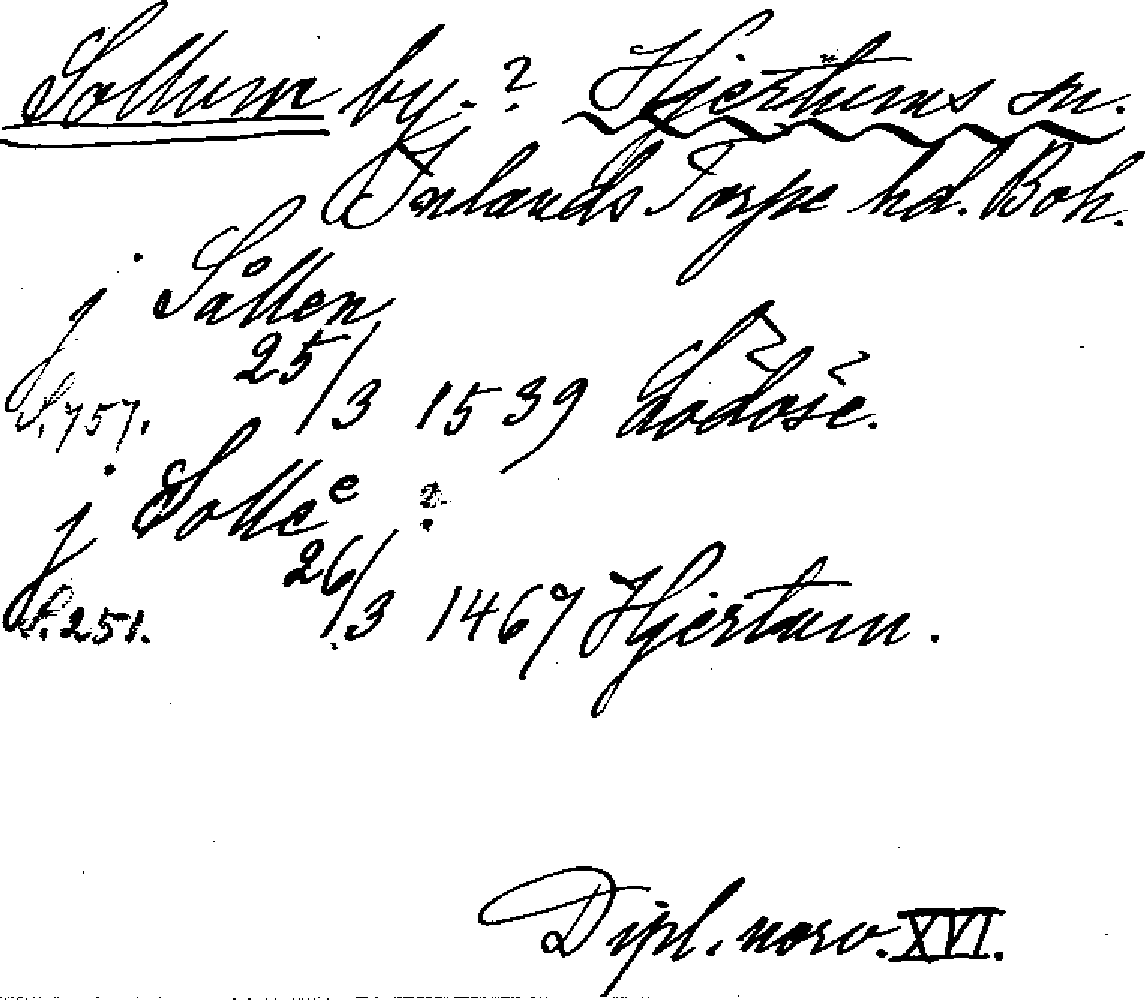 Sollum by. ? Hjertums sn.
Inlands Torpe hd. Boh.
j Sållen
S. 757. 25/3 1539 Lödöse.
j Solle e ?
S. 251. 26/3 1467 Hjertum.
Dipl. norv. XVI.